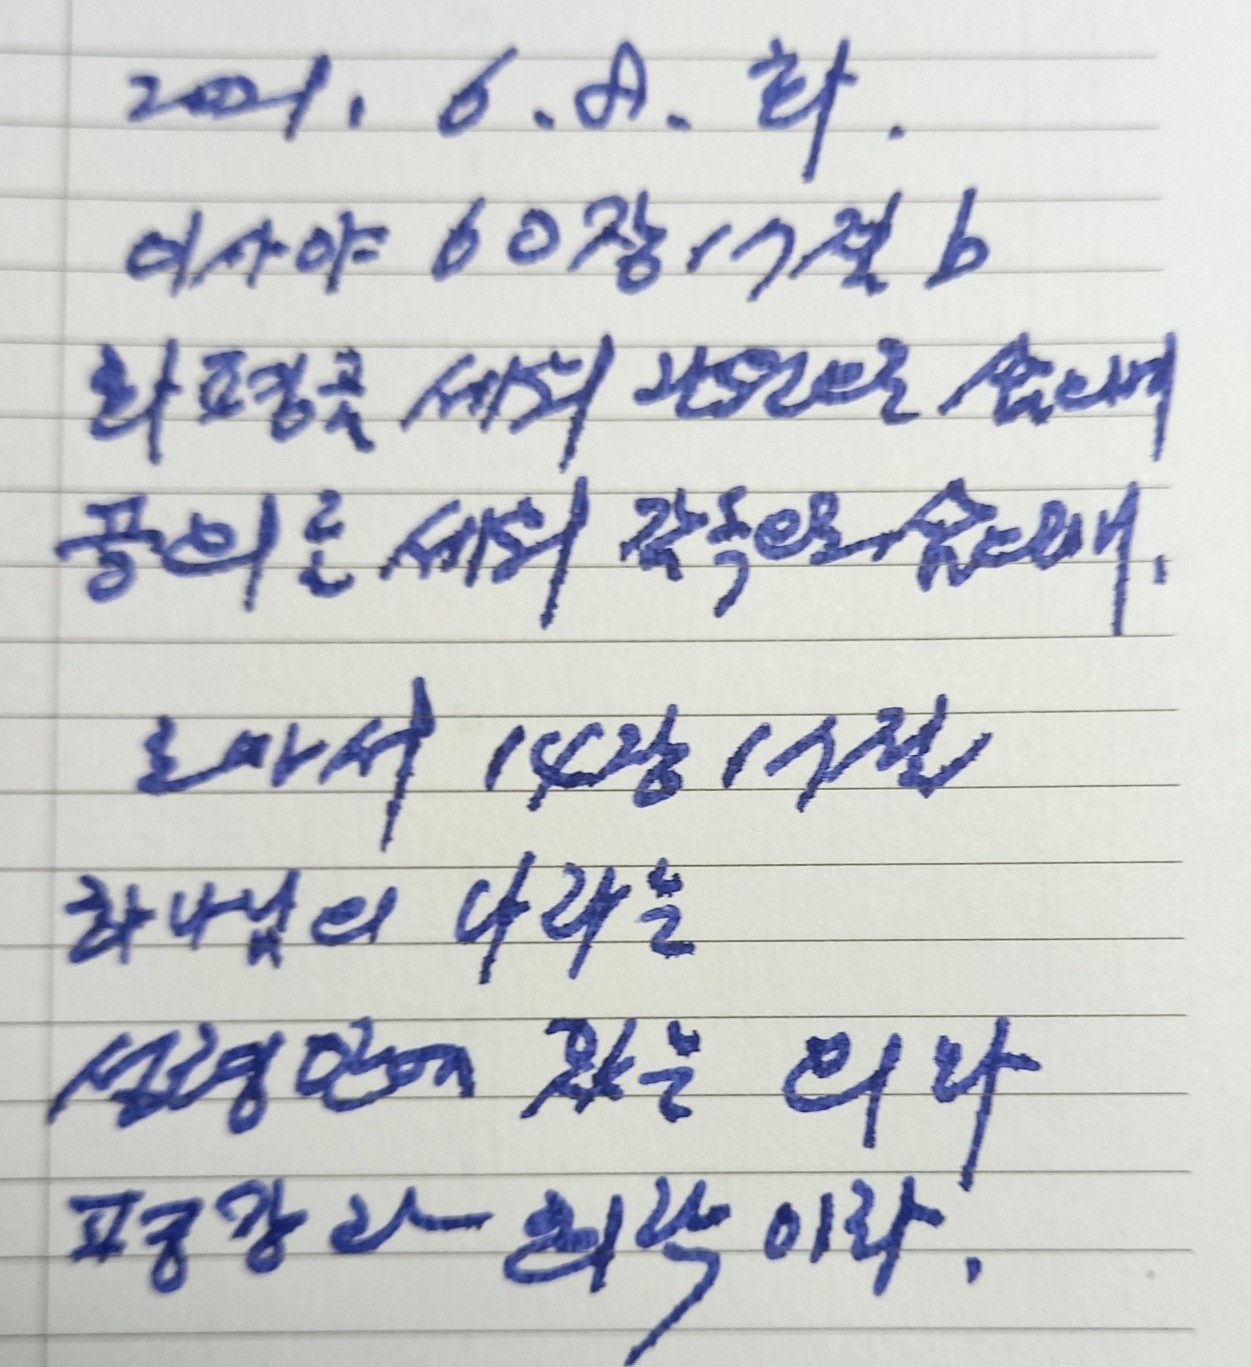 2021. 6. 8. 화.
이사야 60장 17절 b
화평을 세워 관원으로 삼으며
공의를 세워 감독으로 삼으며.
로마서 14장 17절
하나님의 나라는
성령 안에 있는 의와
평강과 희락이라.